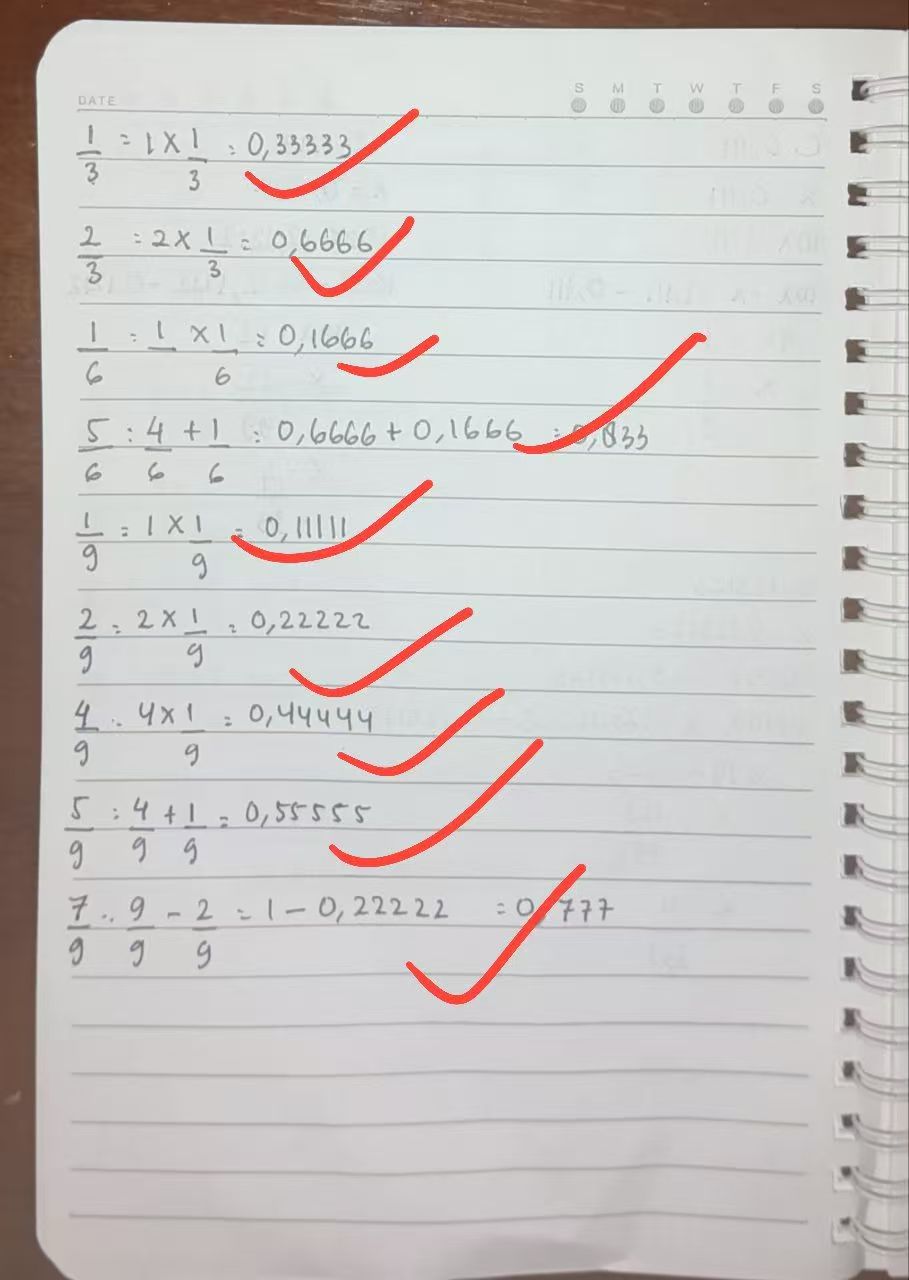 DATE S M T W T F S
1/3 = 1 × 1/3 = 0,33333
2/3 = 2 × 1/3 = 0,6666
1/6 = 1 × 1/6 = 0,1666
5/6 = 4/6 + 1/6 = 0,6666 + 0,1666 = 0,833
1/9 = 1 × 1/9 = 0,11111
2/9 = 2 × 1/9 = 0,22222
4/9 = 4 × 1/9 = 0,44444
5/9 = 4/9 + 1/9 = 0,55555
7/9 = 9/9 - 2/9 = 1 - 0,22222 = 0,777